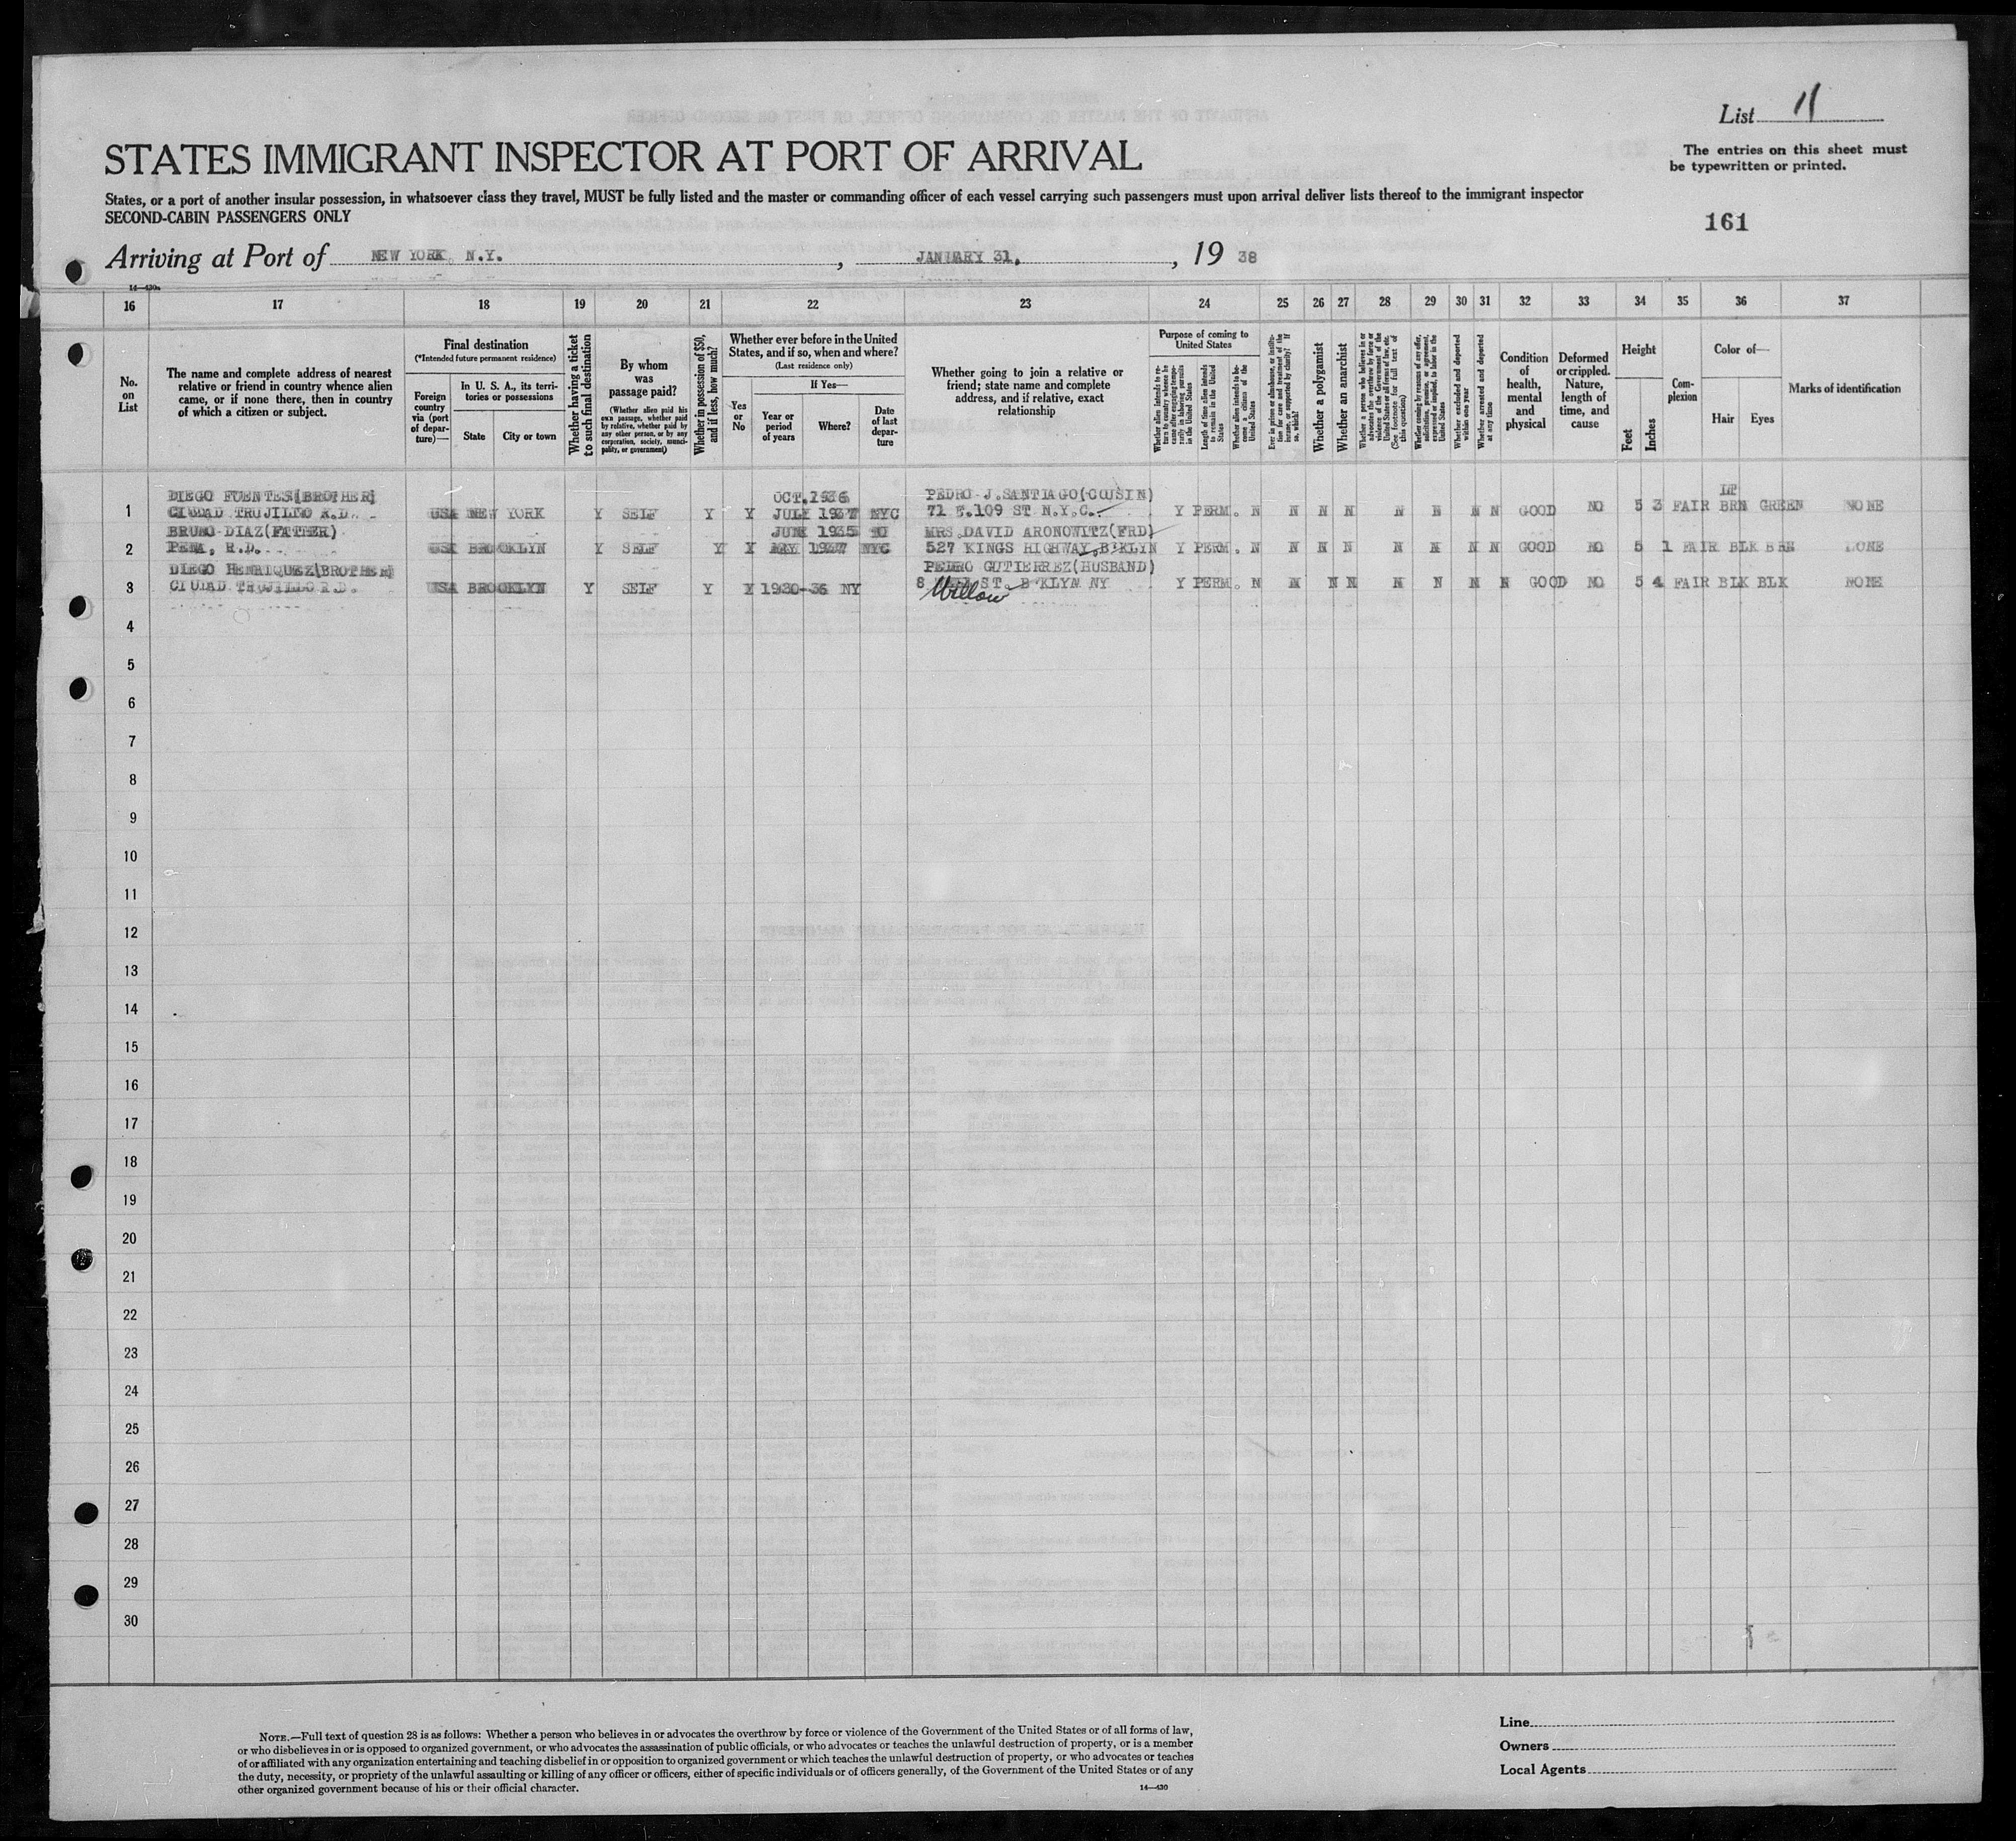 List 11
STATES IMMIGRANT INSPECTOR AT PORT OF ARRIVAL
The entries on this sheet must
be typewritten or printed.
States, or a port of another insular possession, in whatsoever class they travel, MUST be fully listed and the master or commanding officer of each vessel carrying such passengers must upon arrival deliver lists thereof to the immigrant inspector
SECOND-CABIN PASSENGERS ONLY
161
Arriving at Port of NEW YORK N.Y., JANUARY 31, 19 38
14—430a
16 17 18 19 20 21 22 23 24 25 26 27 28 29 30 31 32 33 34 35 36 37
No. on List
The name and complete address of nearest relative or friend in country whence alien came, or if none there, then in country of which a citizen or subject.
Final destination
(*Intended future permanent residence)
Foreign country via (port of departure)—
In U. S. A., its territories or possessions
State
City or town
Whether having a ticket to such final destination
By whom was passage paid?
(Whether alien paid his own passage, whether paid by relative, whether paid by any other person, or by any corporation, society, municipality, or government)
Whether in possession of $50, and if less, how much?
Whether ever before in the United States, and if so, when and where?
(Last residence only)
Yes or No
If Yes—
Year or period of years
Where?
Date of last departure
Whether going to join a relative or friend; state name and complete address, and if relative, exact relationship
Purpose of coming to United States
Whether alien intends to return to country whence he came after engaging temporarily in laboring pursuits in the United States
Length of time alien intends to remain in the United States
Whether alien intends to become a citizen of the United States
Ever in prison or almshouse, or institution for care and treatment of the insane, or supported by charity? If so, which?
Whether a polygamist
Whether an anarchist
Whether a person who believes in or advocates the overthrow by force or violence of the Government of the United States or all forms of law, etc. (See footnote for full text of this question)
Whether coming by reason of any offer, solicitation, promise, or agreement, expressed or implied, to labor in the United States
Whether excluded and deported within one year
Whether arrested and deported at any time
Condition of health, mental and physical
Deformed or crippled. Nature, length of time, and cause
Height
Feet
Inches
Complexion
Color of—
Hair
Eyes
Marks of identification
DIEGO FUENTES(BROTHER) OCT.1936 PEDRO J.SANTIAGO(COUSIN) LT
1 CIUDAD TRUJILLO R.D. USA NEW YORK Y SELF Y Y JULY 1937 NYC 71 E.109 ST N.Y.C. Y PERM. N N N N N N N N GOOD NO 5 3 FAIR BRN GREEN NONE
BRUNO DIAZ(FATHER) JUNE 1935 TO MRS.DAVID ARONOWITZ(FRD)
2 PENA, R.D. USA BROOKLYN Y SELF Y Y MAY 1937 NYC 527 KINGS HIGHWAY,B'KLYN Y PERM. N N N N N N N N GOOD NO 5 1 FAIR BLK BRN NONE
DIEGO HENRIQUEZ(BROTHER) PEDRO GUTIERREZ(HUSBAND)
3 CIUDAD TRUJILLO R.D. USA BROOKLYN Y SELF Y Y 1930-36 NY 8 ST. B'KLYN NY Y PERM. N N N N N N N N GOOD NO 5 4 FAIR BLK BLK NONE
Willow
4
5
6
7
8
9
10
11
12
13
14
15
16
17
18
19
20
21
22
23
24
25
26
27
28
29
30
NOTE.—Full text of question 28 is as follows: Whether a person who believes in or advocates the overthrow by force or violence of the Government of the United States or of all forms of law,
or who disbelieves in or is opposed to organized government, or who advocates the assassination of public officials, or who advocates or teaches the unlawful destruction of property, or is a member
of or affiliated with any organization entertaining and teaching disbelief in or opposition to organized government or which teaches the unlawful destruction of property, or who advocates or teaches
the duty, necessity, or propriety of the unlawful assaulting or killing of any officer or officers, either of specific individuals or of officers generally, of the Government of the United States or of any
other organized government because of his or their official character.
14—430
Line
Owners
Local Agents